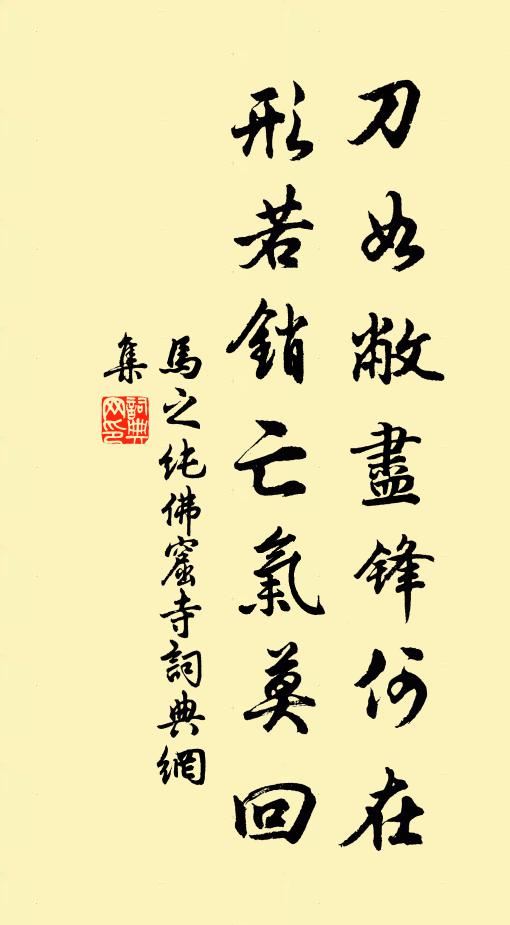 刀如敝盡鋒何在
形若銷亡氣莫回
馬之純佛窟寺詞典網
集
詞典網印